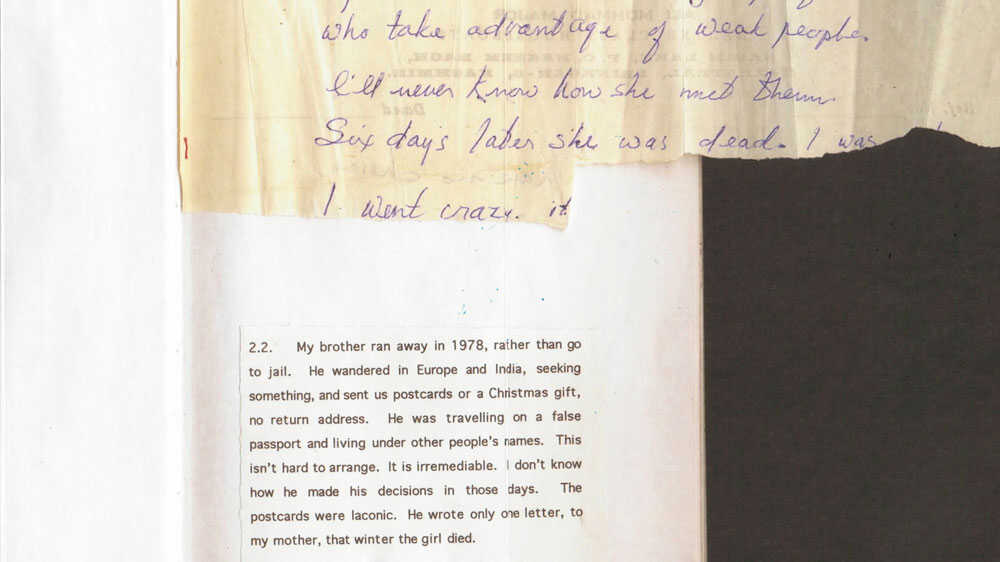 who take advantage of weak people.
I'll never know how she met them.
Six days later she was dead. I was
I went crazy. it
2.2. My brother ran away in 1978, rather than go
to jail. He wandered in Europe and India, seeking
something, and sent us postcards or a Christmas gift,
no return address. He was travelling on a false
passport and living under other people's names. This
isn't hard to arrange. It is irremediable. I don't know
how he made his decisions in those days. The
postcards were laconic. He wrote only one letter, to
my mother, that winter the girl died.